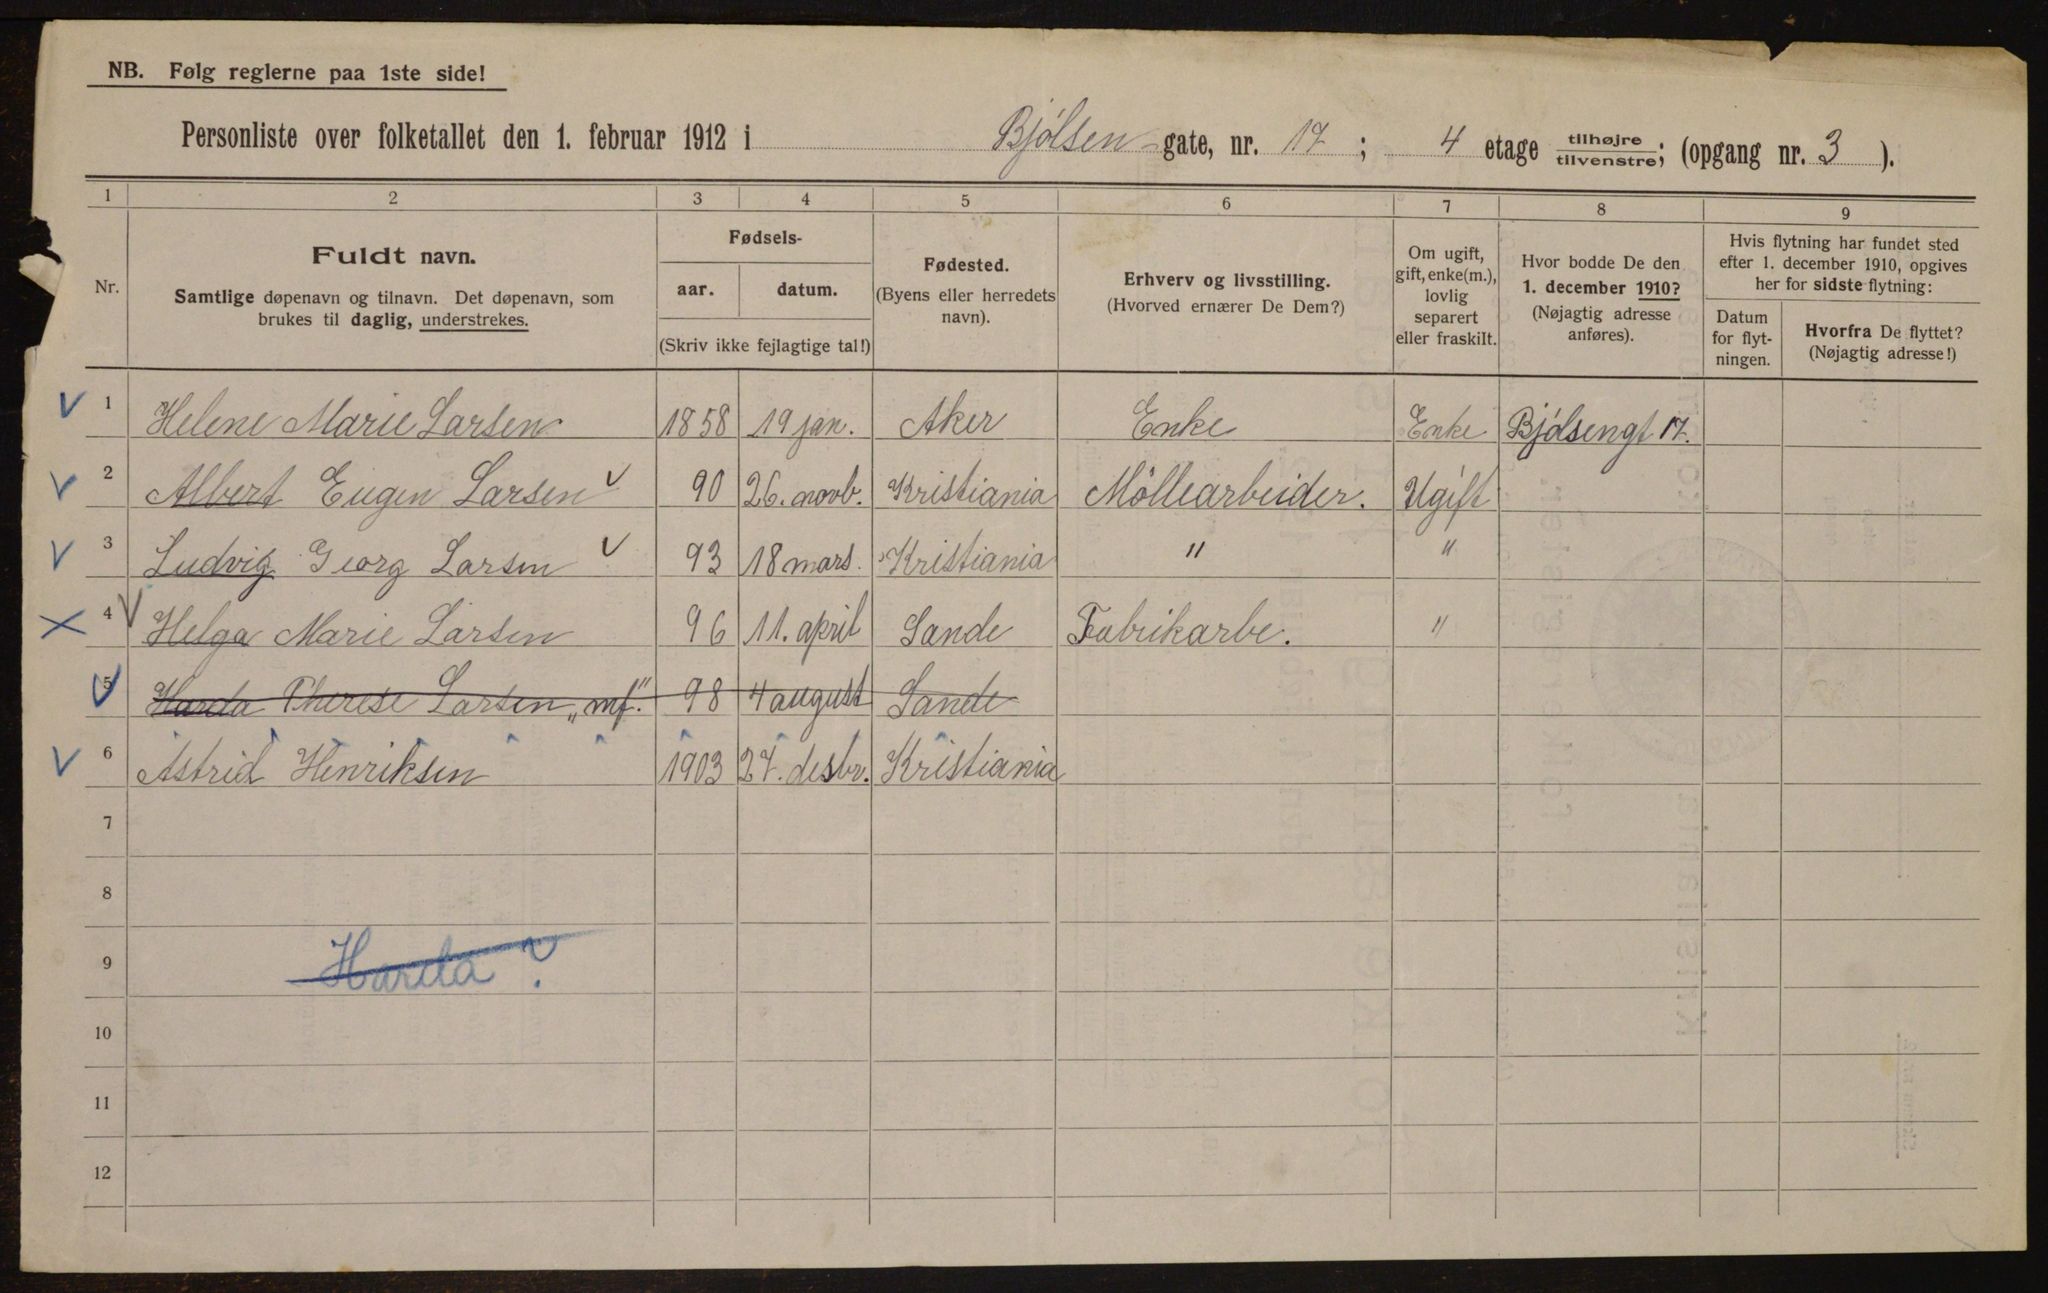 NB. Følg reglerne paa 1ste side!
Personliste over folketallet den 1. februar 1912 i Bjølsen-gate, nr. 17; 4 etage tilhøjre/tilvenstre; (opgang nr. 3).
1 2 3 4 5 6 7 8 9
Nr.
Fuldt navn.
Samtlige døpenavn og tilnavn. Det døpenavn, som
brukes til daglig, understrekes.
Fødsels-
aar. datum.
(Skriv ikke fejlagtige tal!)
Fødested.
(Byens eller herredets
navn).
Erhverv og livsstilling.
(Hvorved ernærer De Dem?)
Om ugift,
gift, enke(m.),
lovlig
separert
eller fraskilt.
Hvor bodde De den
1. december 1910?
(Nøjagtig adresse
anføres).
Hvis flytning har fundet sted
efter 1. december 1910, opgives
her for sidste flytning:
Datum
for flyt-
ningen.
Hvorfra De flyttet?
(Nøjagtig adresse!)
1 Helene Marie Larsen 1858 19 jan. Aker Enke Enke Bjølsengt 17.
2 Albert Eugen Larsen 90 26. novb. Kristiania Möllearbeider. Ugift
3 Ludvig Georg Larsen 93 18 mars. Kristiania " "
4 Helga Marie Larsen 96 11. april Sande Fabrikarbe. "
5 Harda Therese Larsen „mf." 98 4 august Sande
6 Astrid Henriksen 1903 27. desbr. Kristiania
7
8
9 Harda ?
10
11
12